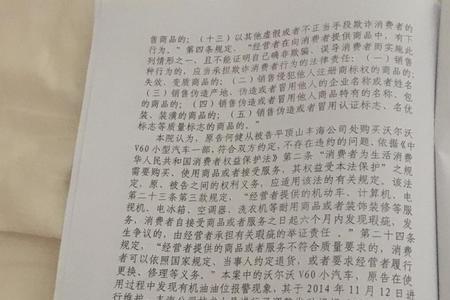 售商品的；（十三）以其他虚假或者不正当手段欺诈消费者的
行为。”第四条规定，“经营者在向消费者提供商品中，有下
列情形之一，且不能证明自己确非欺骗、误导消费者而实施此
种行为的，应当承担欺诈消费者行为的法律责任：（一）销售
失效、变质商品的；（二）销售侵犯他人注册商标权的商品的；
（三）销售伪造产地、伪造或者冒用他人的企业名称或者姓名
的商品的；（四）销售伪造或者冒用他人商品特有的名称、包
装、装潢的商品的；（五）销售伪造或者冒用认证标志、名优
标志等质量标志的商品的。”
本院认为，原告何健从被告平顶山丰海公司处购买沃尔沃
V60小型汽车一部，符合双方约定，不存在违约的问题。依据《中
华人民共和国消费者权益保护法》第二条“消费者为生活消费
需要购买、使用商品或者接受服务，其权益受本法保护”之规
定，原、被告之间的权利义务，应适用该法的有关规定。该法
第二十三条第三款规定，“经营者提供的机动车、计算机、电
视机、电冰箱、空调器、洗衣机等耐用商品或者装饰装修等服
务，消费者自接受商品或者服务之日起六个月内发现瑕疵，发
生争议的，由经营者承担有关瑕疵的举证责任。”第二十四条
规定，“经营者提供的商品或者服务不符合质量要求的，消费
者可以依照国家规定、当事人约定退货，或者要求经营者履行
更换、修理等义务。”本案中的沃尔沃V60小型汽车，原告在使
用过程中发现有机油油位报警现象，其于2014年11月12日进